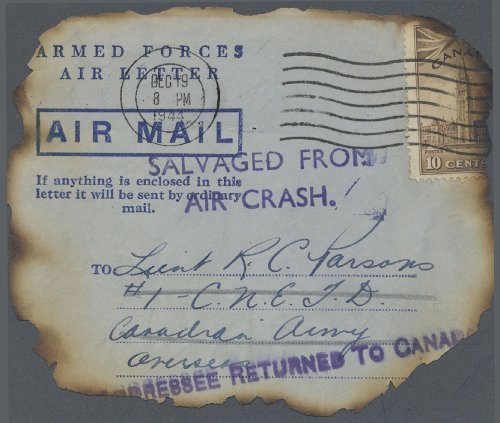 ARMED FORCES
AIR LETTER
DEC 19
8 PM
1944
CANADA
10 CENTS
AIR MAIL
SALVAGED FROM
AIR CRASH.
If anything is enclosed in this
letter it will be sent by ordinary
mail.
TO Lieut R. C. Parsons
#1 - C.N.E.T.D.
Canadian Army
Overseas
DDRESSEE RETURNED TO CANADA